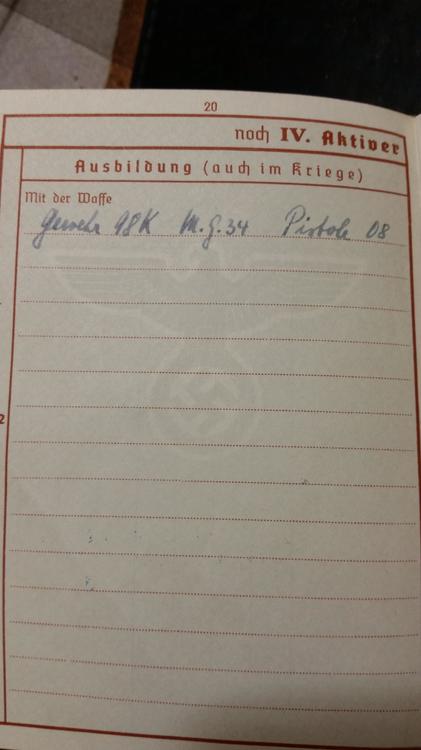 20
noch IV. Aktiver
Ausbildung (auch im Kriege)
Mit der Waffe
Gewehr 98K M.G.34 Pistole 08
2